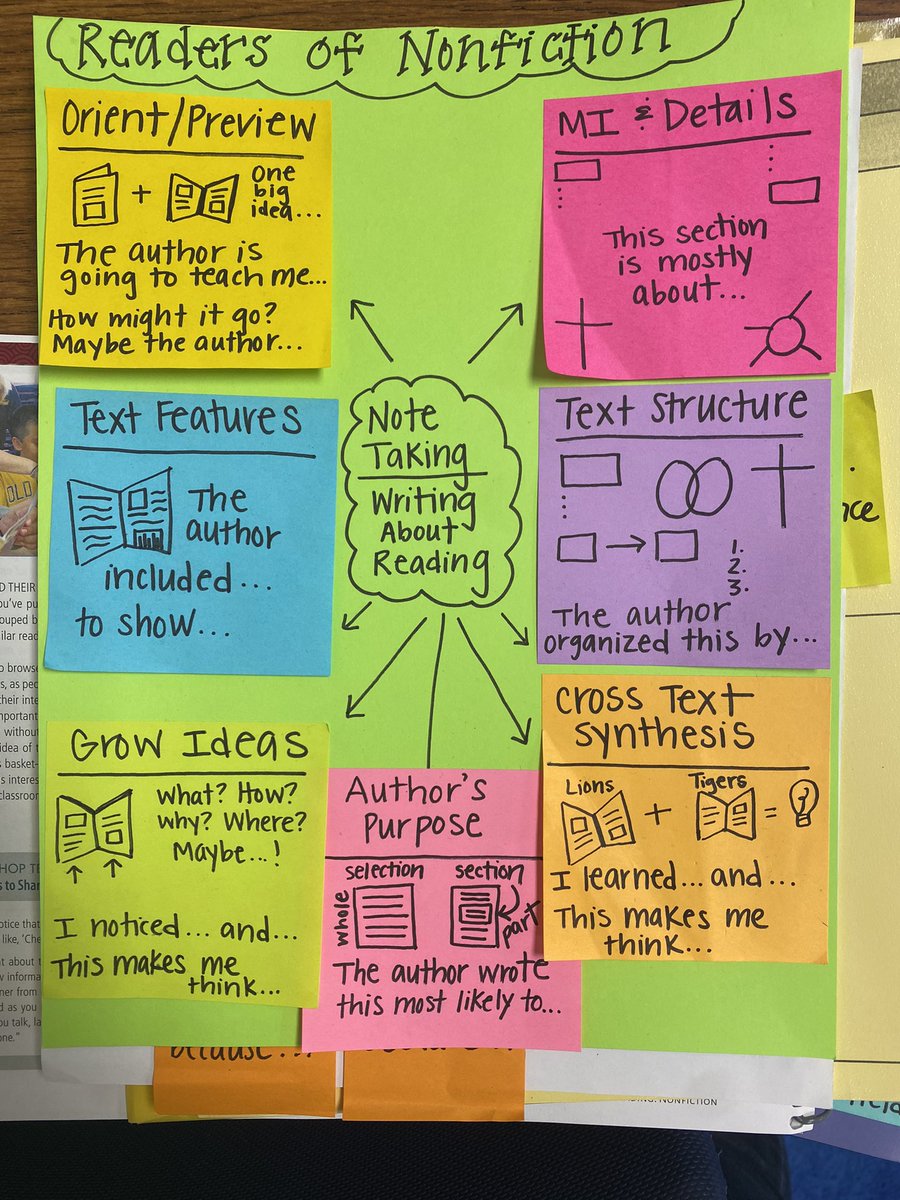 Readers of Nonfiction
Orient/Preview
+
One
big
idea...
The author is
going to teach me...
How might it go?
Maybe the author...
MI & Details
This section
is mostly
about...
Text Features
The
author
included...
to show...
Note
Taking
Writing
About
Reading
Text Structure
1.
2.
3.
The author
organized this by...
Grow Ideas
What? How?
Why? Where?
Maybe...!
I noticed... and...
This makes me
think...
Author's
Purpose
selection
section
whole
part
The author wrote
this most likely to...
Cross Text
Synthesis
Lions
Tigers
+
=
I learned... and...
This makes me
think...
because...
OLD
D THEIR
ou've pu
ouped b
ilar read
o browse
s, as peo
their inte
mportant
without
idea of t
s basket-
s interes
classroom
HOP TE
s to Shar
otice that
like, 'Che
at about t
w informa
ner from
d as you
ou talk, la
one."
nce
NONFICTION